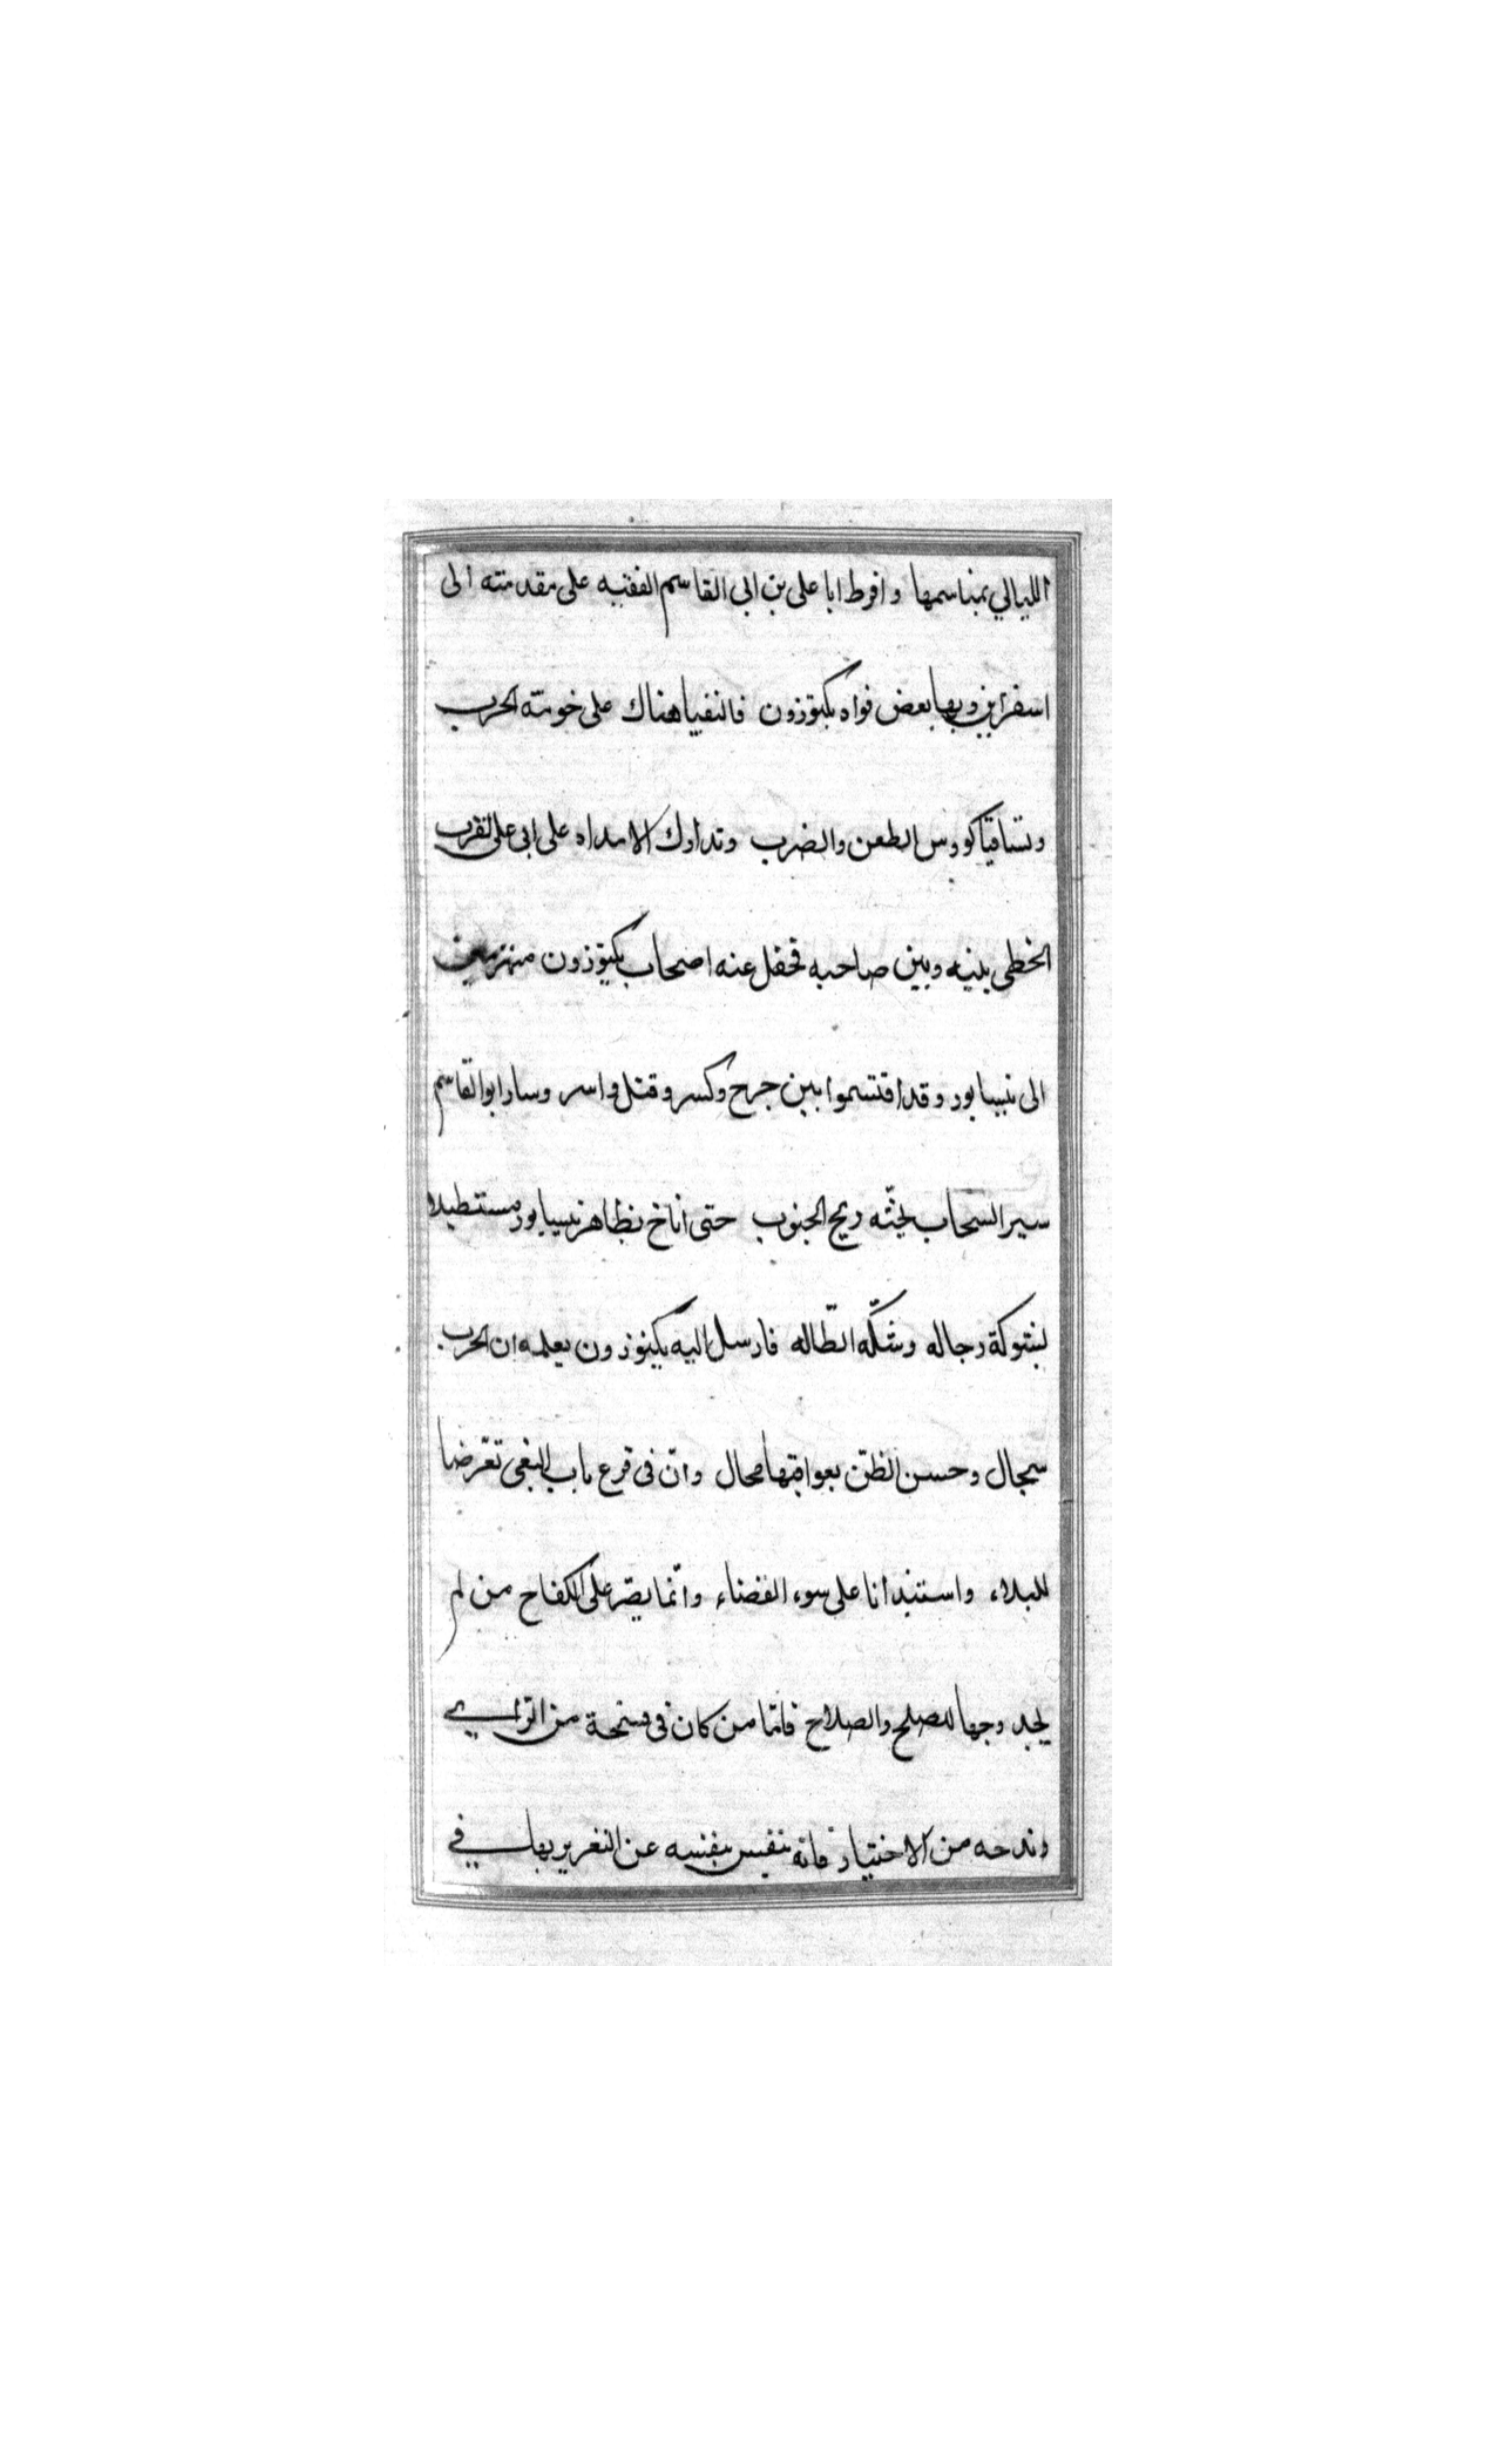 الليالي بمناسمها وافرط ابا على بن ابى القاسم الفقيه على مقدمته الى
اسفراين وبها بعض قواد بكتوزون فالتقيا هناك على خومة الحرب
وتساقيا كووس الطعن والضرب وتدارك الامداد على ابى على لقرب
الخطى بينه وبين صاحبه فجفل عنه اصحاب بكتوزون منهزمين
الى نيسابور وقد اقتسموا بين جرح وكسر وقتل واسر وسار ابو القاسم
سير السحاب يحثه ريح الجنوب حتى اناخ بظاهر نيسابور مستطيلا
بشوكة رجاله وشكّه ابطّاله فارسل اليه بكتوزون يعلمه ان الحرب
سجال وحسن الظنّ بعواقبها محال وانّ فى قرع باب البغى تعرّضا
للبلاء واستنبذانا على سوء القضاء وانّما يصرّ على الكفاح من لم
يجد وجها للصلح والصلاح فامّا من كان فى فسحة من الراي
وندحه من الاختيار فانه ينفس بنفسه عن التغرير بها في